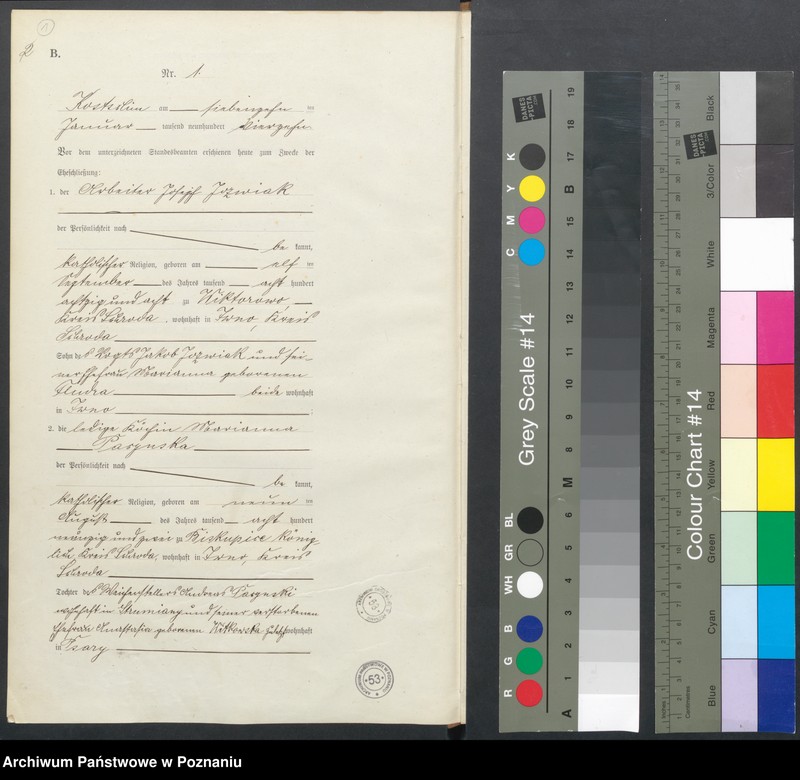 2
1
B.
Nr. 1.
Kostschin am siebenzehn ten
Januar tausend neunhundert vierzehn
Vor dem unterzeichneten Standesbeamten erschienen heute zum Zwecke der
Eheschließung:
1. der Arbeiter Joseph Jozwiak
der Persönlichkeit nach
be kannt,
katholischer Religion, geboren am elf ten
September des Jahres tausend acht hundert
achtzig und acht zu Wiktorowo,
Kreis Schroda, wohnhaft in Iwno, Kreis
Schroda
Sohn des Vogts Jakob Jozwiak und sei-
ner Ehefrau Marianna geborenen
beide wohnhaft
in Iwno ;
2. die ledige Köchin Marianna
der Persönlichkeit nach
be kannt,
katholischer Religion, geboren am neun ten
August des Jahres tausend acht hundert
neunzig und zwei zu Biskupice König-
lich, Kreis Schroda, wohnhaft in Iwno, Kreis
Schroda
Tochter des Weichenstellers Andreas
wohnhaft in und seiner verstorbenen
Ehefrau Anastasia geborenen Witkowska zuletzt wohnhaft
in
53
Grey Scale #14
DANES
-PICTA
.COM
R G B WH GR BL C M Y K
A 1 2 3 4 5 6 M 8 9 10 11 12 13 14 15 B 17 18 19
Colour Chart #14
DANES
-PICTA
.COM
Blue Cyan Green Yellow Red Magenta White 3/Color Black
Inches
Centimetres
Archiwum Państwowe w Poznaniu